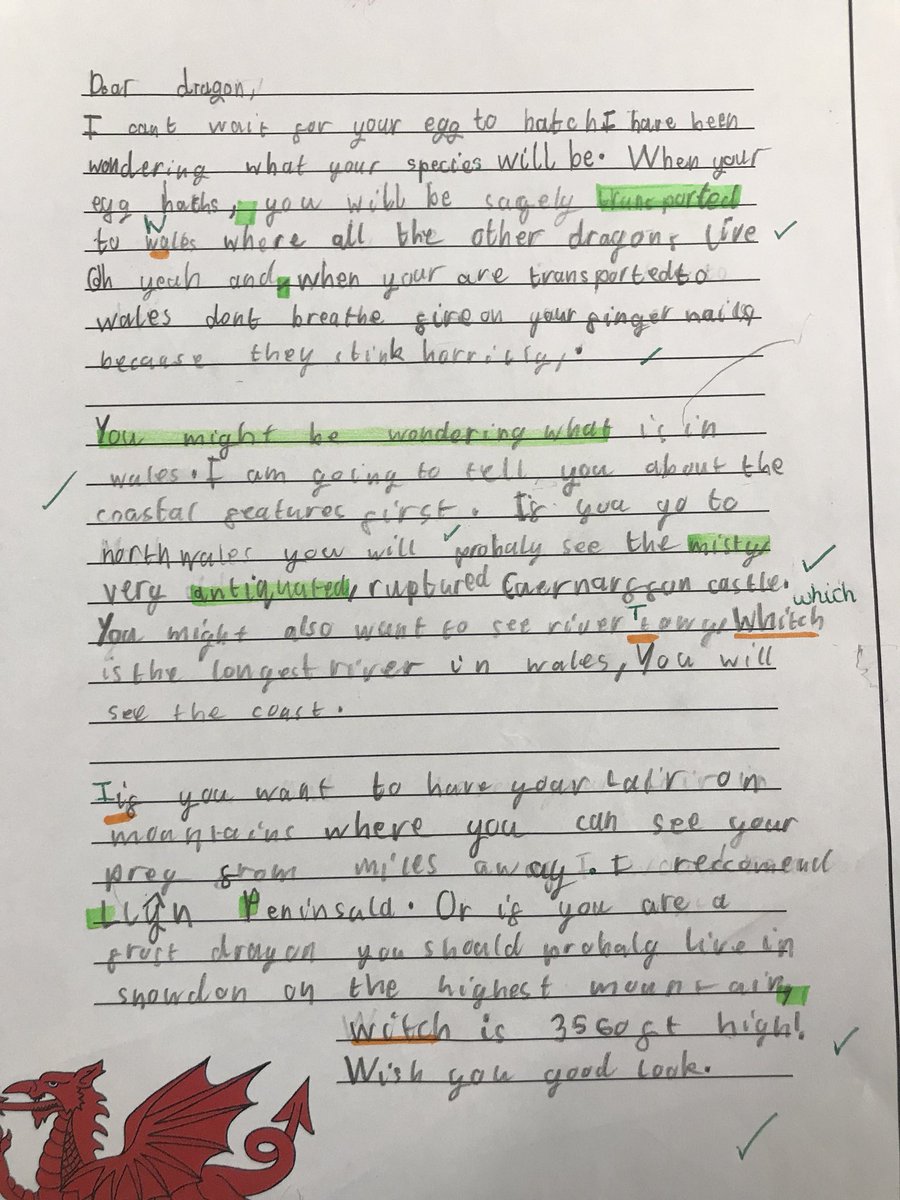 Dear dragon,
I cant wait for your egg to hatch I have been
wondering what your species will be. When your
egg haths, you will be safely transported
W
to wales where all the other dragons live
Oh yeah and, when your are transported to
wales dont breathe fire on your finger nails
because they stink
You might be wondering what is in
wales. I am going to tell you about the
coastal features first. If you go to
north wales you will probaly see the misty
very antiquated, ruptured Caernarffon castle.
which
You might also want to see river Towy, Whitch
is the longest river in wales, You will
see the coast.
I if you want to have your Lair on
mountains where you can see your
prey from miles away. I reccomend
Llyn Peninsala. Or if you are a
frost dragon you should probaly live in
snowdon on the highest mountain,
witch is 3560ft high!
Wish you good look.